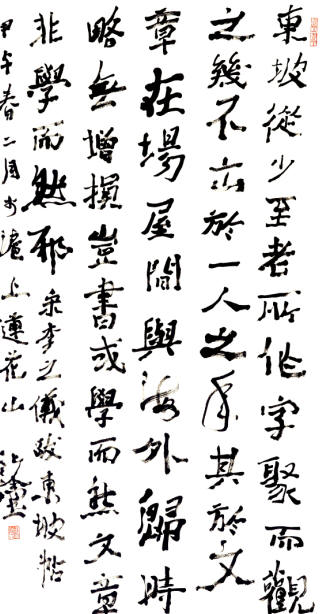 東坡從少至老所作字聚而觀
之幾不出於一人之手其於文
章在場屋間與海外歸時
略無增損豈書或學而然文章
非學而然耶 李之儀跋東坡帖
甲午春二月於滬上蓮花山